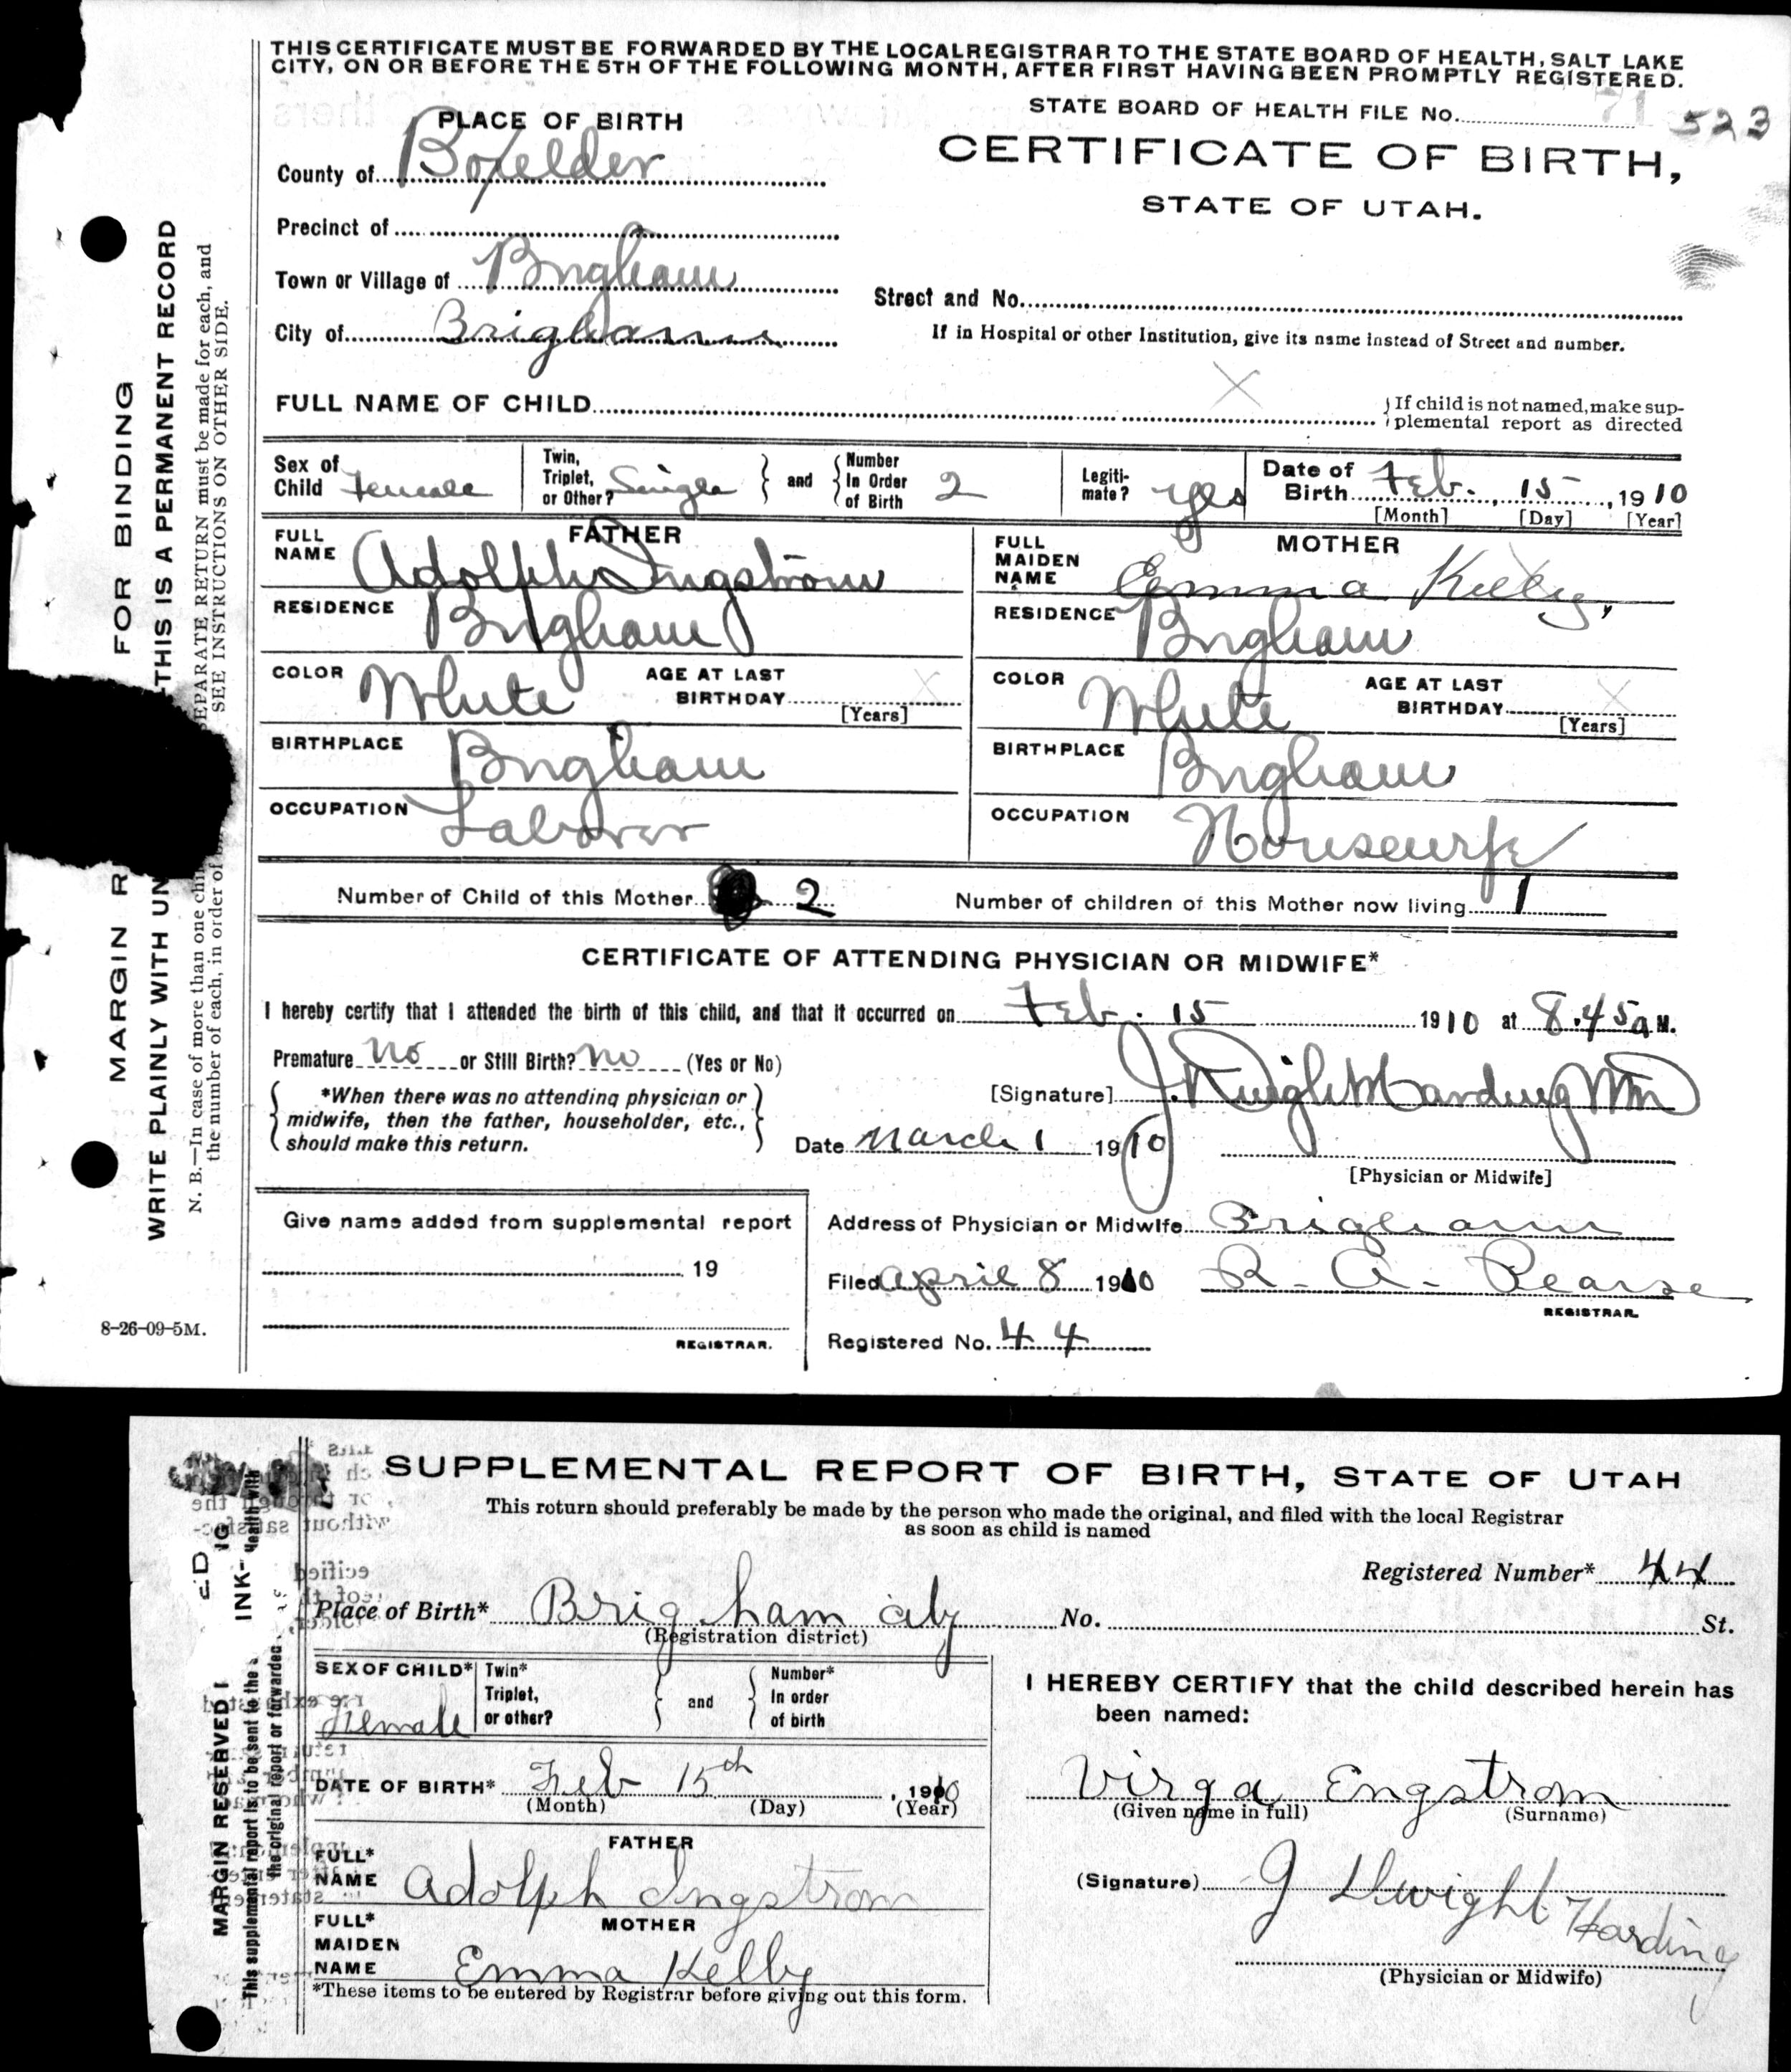 THIS CERTIFICATE MUST BE FORWARDED BY THE LOCAL REGISTRAR TO THE STATE BOARD OF HEALTH, SALT LAKE
CITY, ON OR BEFORE THE 5TH OF THE FOLLOWING MONTH, AFTER FIRST HAVING BEEN PROMPTLY REGISTERED.
STATE BOARD OF HEALTH FILE No. 71 523
CERTIFICATE OF BIRTH,
STATE OF UTAH.
PLACE OF BIRTH
County of Boxelder
Precinct of
Town or Village of Brigham
City of Brigham
Street and No.
If in Hospital or other Institution, give its name instead of Street and number.
FULL NAME OF CHILD
If child is not named, make sup-
plemental report as directed
Sex of Child Female
Twin, Triplet, or Other? Single
and
Number In Order of Birth 2
Legiti-mate? yes
Date of Birth Feb. 15, 1910
[Month] [Day] [Year]
FATHER
FULL NAME Adolph Ingstrom
RESIDENCE Brigham
COLOR White AGE AT LAST BIRTHDAY X
[Years]
BIRTHPLACE Brigham
OCCUPATION Laborer
MOTHER
FULL MAIDEN NAME Emma Kelly,
RESIDENCE Brigham
COLOR White AGE AT LAST BIRTHDAY X
[Years]
BIRTHPLACE Brigham
OCCUPATION Housewife
Number of Child of this Mother 2 Number of children of this Mother now living 1
CERTIFICATE OF ATTENDING PHYSICIAN OR MIDWIFE*
I hereby certify that I attended the birth of this child, and that it occurred on Feb. 15 1910 at 8.45 a M.
Premature no or Still Birth? no (Yes or No)
*When there was no attending physician or
midwife, then the father, householder, etc.,
should make this return.
[Signature] J. Dwight Harding MD
Date March 1 1910
[Physician or Midwife]
Give name added from supplemental report
19
REGISTRAR.
Address of Physician or Midwife Brigham
Filed April 8 1910 R. A. Pearse
REGISTRAR.
Registered No. 44
8-26-09-5M.
FOR BINDING
MARGIN R
WRITE PLAINLY WITH UN
THIS IS A PERMANENT RECORD
N. B.—In case of more than one chi
SEPARATE RETURN must be made for each, and
the number of each, in order of
SEE INSTRUCTIONS ON OTHER SIDE.
SUPPLEMENTAL REPORT OF BIRTH, STATE OF UTAH
This return should preferably be made by the person who made the original, and filed with the local Registrar
as soon as child is named
Registered Number* 44
Place of Birth* Brigham City No. St.
(Registration district)
SEX OF CHILD* Female
Twin* Triplet, or other?
and
Number* In order of birth
DATE OF BIRTH* Feb 15th, 1910
(Month) (Day) (Year)
FATHER
FULL* NAME Adolph Ingstrom
MOTHER
FULL* MAIDEN NAME Emma Kelly
*These items to be entered by Registrar before giving out this form.
I HEREBY CERTIFY that the child described herein has
been named:
Virga Engstrom
(Given name in full) (Surname)
(Signature) J Dwight Harding
(Physician or Midwife)
MARGIN RESERVED
INK-
This supplemental report is to be sent to the
the original report or forwarded
Health with